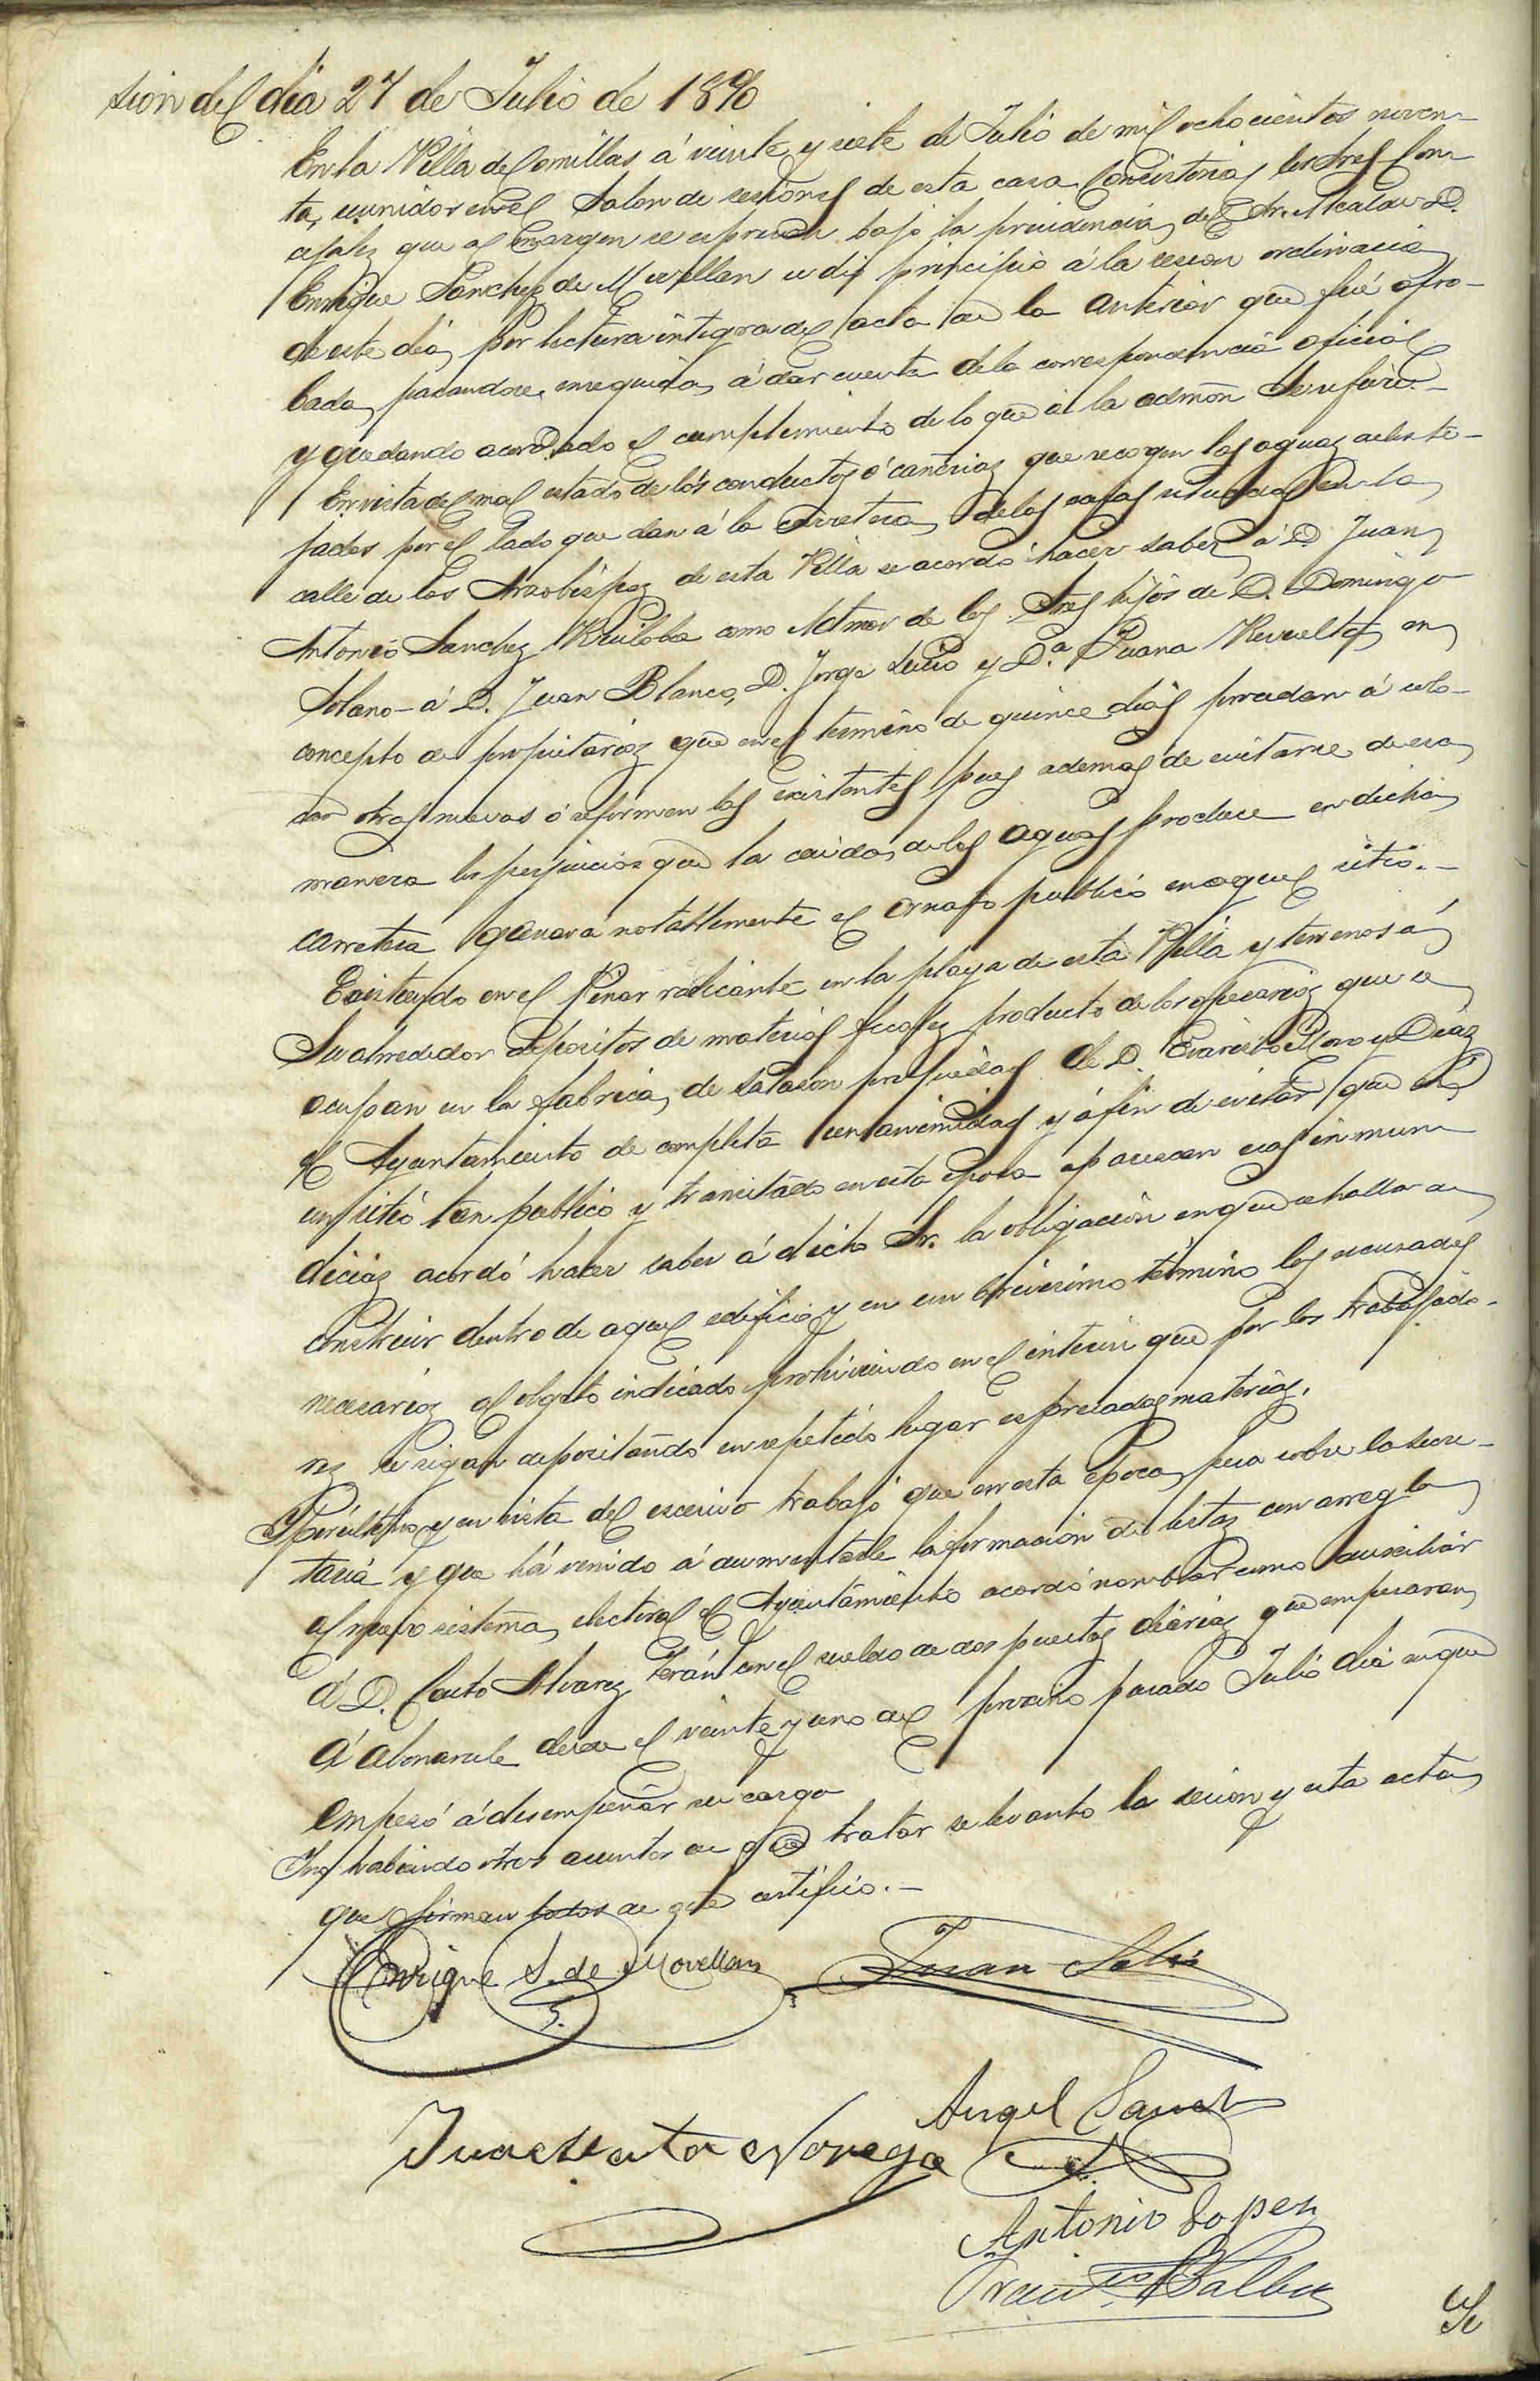 sion del dia 27 de Julio de 1890
En la Villa de Comillas á veinte y siete de Julio de mil ochocientos noven-
ta, reunidos en el Salon de sesiones de esta casa Consistorial los Sres Con-
cejales que al margen se espresan bajo la presidencia del Sr. Alcalde D.
Enrique Sanchez de Movellan se dió principio á la sesion ordinaria
de este dia, por lectura integra del acta de la anterior que fué apro-
bada, pasandose enseguida á dar cuenta de la correspondencia oficial
y quedando acordado el cumplimiento de lo que á la admón se refiere.-
En vista del mal estado de los conductos ó cañerias que recogen las aguas de los te-
jados por el lado que dan á la carretera, de las casas situadas en la
calle de los Arzobispos de esta Villa se acordó hacer saber á D. Juan
Antonio Sanchez Ruiloba como de los Sres hijos de D. Domingo
Solano - á D. Juan Blanco, D. Jorge Lucio y D.ª Juana Revuelta, en
concepto de propietarios que en el termino de quince dias procedan á colo-
car otras nuevas ó reformen las existentes pues ademas de evitarse de esa
manera los perjuicios que la caida de las aguas produce en dicha
carretera ganará notablemente el ornato publico en aquel sitio.-
Existendo en el Penar radicante en la playa de esta Villa y terrenos á
su alrededor depositos de materias fecales producto de los operarios que se
ocupan en la fabrica de salason propiedad de D. Evaristo y Diaz
el Ayuntamiento de completa unanimidad y á fin de evitar que en
un sitio tan publico y transitado en esta epoca aparezcan esas inmun-
dicias acordó hacer saber á dicho Sr. la obligacion en que se halla de
construir dentro de aquel edificio y en un brevisimo término los escusados
necesarios al objeto indicado prohiviendo en el interin que por los trabajado-
res se sigan depositando en repetido lugar espresadas materias.
Por último y en vista del escesivo trabajo que en esta época pesa sobre la Secre-
taria y que há venido á aumentarle la formacion de listas con arreglo
al nuevo sistema electoral el Ayuntamiento acordó nombrar como auxiliar
á D. Casto Alvarez Terán con el sueldo de dos pesetas diarias que empezaran
á abonarsele desde el veinte y uno del proximo pasado Julio dia en que
empezó á desempeñar su cargo
Y no habiendo otros asuntos de que tratar se levanto la sesion y esta acta
que firman todos de que certifico.-
Enrique S. de Movellan
Juan
Angel Sanch
Juan Noriega
Antonio Lopez
Fran.co Balbu
Se